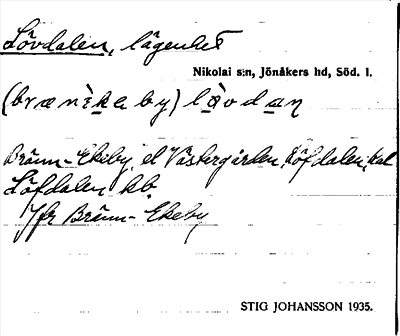 Lövdalen, lägenhet
Nikolai s:n, Jönåkers hd, Söd. l.
(brænìkeby) lòvdan
Bränn-Ekeby, el Västergården, Löfdalen, kal
Löfdalen hb
Jfr Bränn-Ekeby
STIG JOHANSSON 1935.